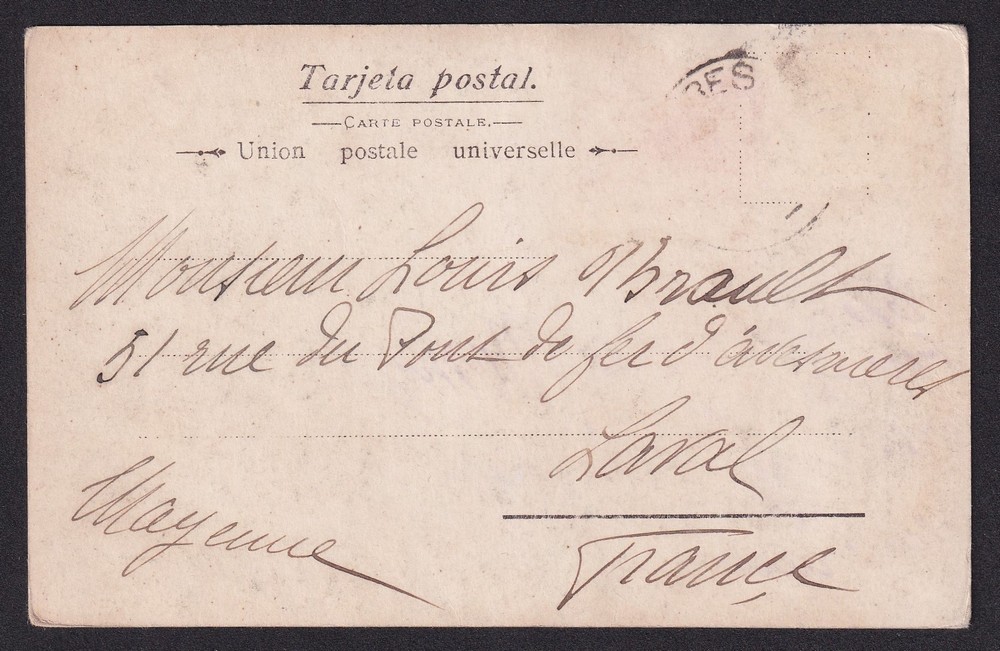 Tarjeta postal.
CARTE POSTALE.
Union postale universelle
RES
Monsieur Louis Brault
51 rue du Pont de fer d'avesnieres
Laval
Mayenne
France